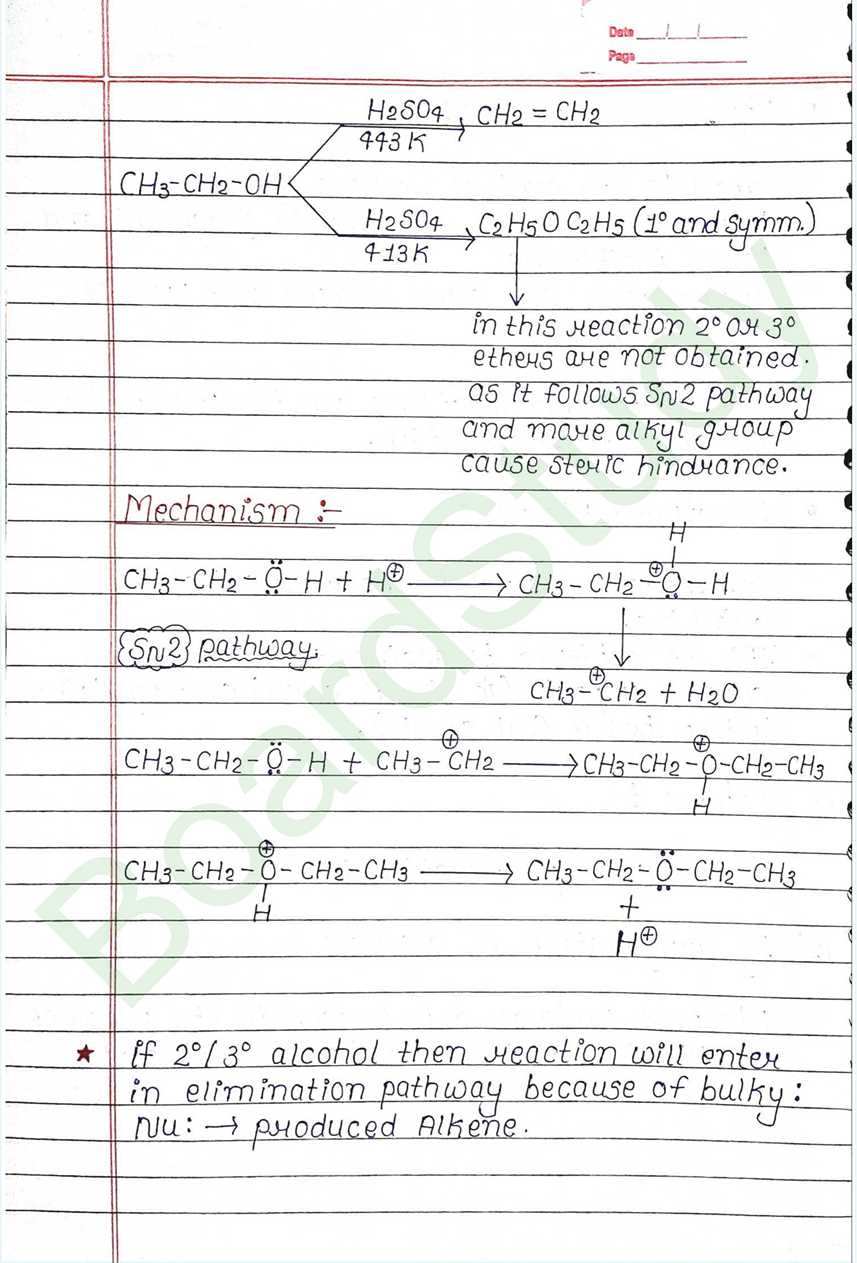 Date / /
Page
H2SO4
443 K
CH2 = CH2
CH3-CH2-OH
H2SO4
413 K
C2H5OC2H5 (1° and symm.)
in this reaction 2° or 3°
ethers are not obtained.
as it follows SN2 pathway
and more alkyl group
cause steric hindrance.
Mechanism :-
H
CH3-CH2-Ö-H + H⊕ → CH3-CH2-⊕O-H
{SN2} pathway.
CH3-⊕CH2 + H2O
CH3-CH2-Ö-H + CH3-⊕CH2 → CH3-CH2-⊕O-CH2-CH3
H
CH3-CH2-⊕O-CH2-CH3 → CH3-CH2-Ö-CH2-CH3
H
+
H⊕
★ if 2°/3° alcohol then reaction will enter
in elimination pathway because of bulky:
Nu: → produced Alkene.
BoardStudy